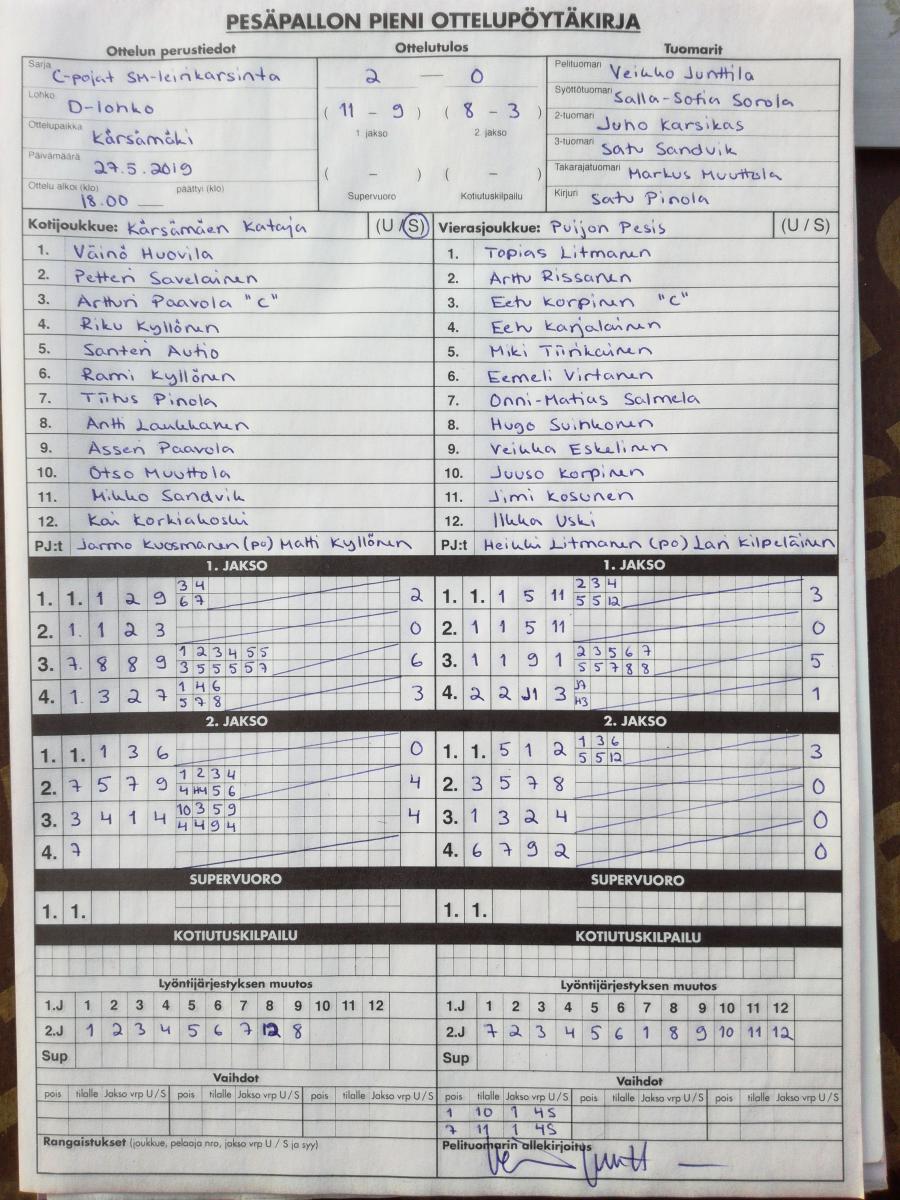 PESÄPALLON PIENI OTTELUPÖYTÄKIRJA
Ottelun perustiedot Ottelutulos Tuomarit
Sarja C-pojat SM-leirikarsinta
Lohko D-lohko
Ottelupaikka Kärsämäki
Päivämäärä 27.5.2019
Ottelu alkoi (klo) 18.00 päättyi (klo)
2 — 0
( 11 - 9 ) ( 8 - 3 )
1 jakso 2. jakso
( - ) ( - )
Supervuoro Kotiutuskilpailu
Pelituomari Veikko Junttila
Syöttötuomari Salla-Sofia Sorola
2-tuomari Juho Karsikas
3-tuomari Satu Sandvik
Takarajatuomari Markus Muuttola
Kirjuri Satu Pinola
Kotijoukkue: Kärsämäen Kataja (U / S)
1. Väinö Huovila
2. Petteri Savelainen
3. Artturi Paavola "C"
4. Riku Kyllönen
5. Santeri Autio
6. Rami Kyllönen
7. Tiitus Pinola
8. Antti Laukkanen
9. Asseri Paavola
10. Otso Muuttola
11. Mikko Sandvik
12. Kai Korkiakoski
PJ:t Jarmo Kuosmanen (po) Matti Kyllönen
Vierasjoukkue: Puijon Pesis (U / S)
1. Topias Litmanen
2. Arttu Rissanen
3. Eetu Korpinen "C"
4. Eetu Karjalainen
5. Miki Tiirikainen
6. Eemeli Virtanen
7. Onni-Matias Salmela
8. Hugo Suihkonen
9. Veikka Eskelinen
10. Juuso Korpinen
11. Jimi Kosunen
12. Ilkka Uski
PJ:t Heikki Litmanen (po) Lari Kilpeläinen
1. JAKSO
1. 1. 1 2 9 3 4 2
6 7
2. 1. 1 2 3 0
3. 7. 8 8 9 1 2 3 4 5 5 6
3 5 5 5 5 7
4. 1. 3 2 7 1 4 6 3
5 7 8
1. JAKSO
1. 1. 1 5 11 2 3 4 3
5 5 12
2. 1 1 5 11 0
3. 1 1 9 1 2 3 5 6 7 5
5 5 7 8 8
4. 2 2 J1 3 J7 1
H3
2. JAKSO
1. 1. 1 3 6 0
2. 7 5 7 9 1 2 3 4 4
4 H4 5 6
3. 3 4 1 4 10 3 5 9 4
4 4 9 4
4. 7
2. JAKSO
1. 1. 5 1 2 1 3 6 3
5 5 12
2. 3 5 7 8 0
3. 1 3 2 4 0
4. 6 7 9 2 0
SUPERVUORO SUPERVUORO
1. 1. 1. 1.
KOTIUTUSKILPAILU KOTIUTUSKILPAILU
Lyöntijärjestyksen muutos
1.J 1 2 3 4 5 6 7 8 9 10 11 12
2.J 1 2 3 4 5 6 7 12 8
Sup
Lyöntijärjestyksen muutos
1.J 1 2 3 4 5 6 7 8 9 10 11 12
2.J 7 2 3 4 5 6 1 8 9 10 11 12
Sup
Vaihdot
pois tilalle Jakso vrp U / S pois tilalle Jakso vrp U / S pois tilalle Jakso vrp U / S
Vaihdot
pois tilalle Jakso vrp U / S pois tilalle Jakso vrp U / S pois tilalle Jakso vrp U / S
1 10 1 4S
7 11 1 4S
Rangaistukset (joukkue, pelaaja nro, jakso vrp U / S ja syy)
Pelituomarin allekirjoitus